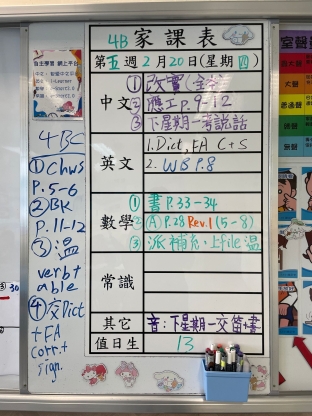 4B 家課表
第五週2月20日(星期四)
中文
① 改實(全)
② 應工 P.9-12
③ 下星期一考說話
英文
1. Dict, FA C+S
2. WB P.8
數學
① 書 P.33-34
② (A) P.28 Rev.1 (5-8)
③ 派補充、上file 溫
常識
其它
音:下星期一交笛書
值日生
13
4BC
① Chws
P.5-6
② BK
P.11-12
③ 溫
verb t
able
④ 交Dict
+FA
corr.+
sign.
自主學習 網上平台